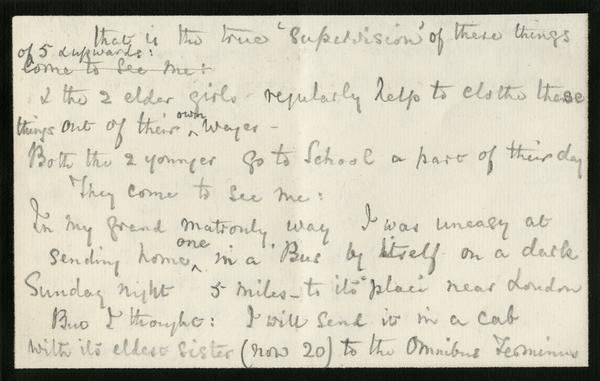 that is the true 'Supervision' of these things
of 5 & upwards:
come to see me:
& the 2 elder girls regularly help to clothe these
things out of their own wages -
Both the 2 younger go to School a part of their day
They come to see me:
In my grand matronly way I was uneasy at
sending home one in a 'Bus by itself on a dark
Sunday night 5 miles - to its place near London
But I thought: I will send it in a cab
with its eldest sister (now 20) to the Omnibus Terminus